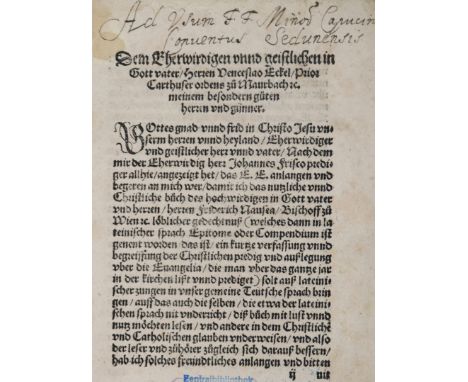 Ad Vsum FF Minoꝝ Capucin
Conventus Sedunensis
Dem Eherwirdigen vnnd geistlichen in
Gott vater/Herren Venceslao Eckel/Prior
Carthuser ordens zů Maurbach ꝛc.
meinem besondern gůten
herren vnd gūnner.
GOttes gnad vnnd frid in Christo Jesu vn-
serm herren vnnd heyland/Eherwirdiger
vnd geistlicher herr vnnd vater/Nach dem
mir der Eherwirdig herr Johannes Frisco predi-
ger allhie/angezeigt het/das E. E. anlangen vnd
begeren an mich wer/damit ich das nutzliche vnnd
Christliche bůch des hochwirdigen in Gott vater
vnd herren/herren Friderich Nausea/Bischoff zů
Wien ꝛc. löblicher gedechtnuß (welches dann in la-
teinischer sprach Epitome oder Compendium ist
genent worden das ist/ein kurtze verfassung vnnd
begreiffung der Christlichen predig vnd außlegung
vber die Euangelia/die man vber das gantze jar
in der kirchen lißt vnnd prediget) solt auß lateini-
scher zungen in vnser gemeine Teutsche sprach brin
gen/auff das auch die selben/die etwa der lateini
schen sprach nit vndericht/diß bůch mit lust vnnd
nutz möchten lesen/vnd andere in dem Christliche
vnd Catholischen glauben vnderweisen/vnd also
der leser vnd zůhörer zůgleich sich darauß bessern/
hab ich solches freundtliches anlangen vnd bitten
ij nit
Zentralbibliothek